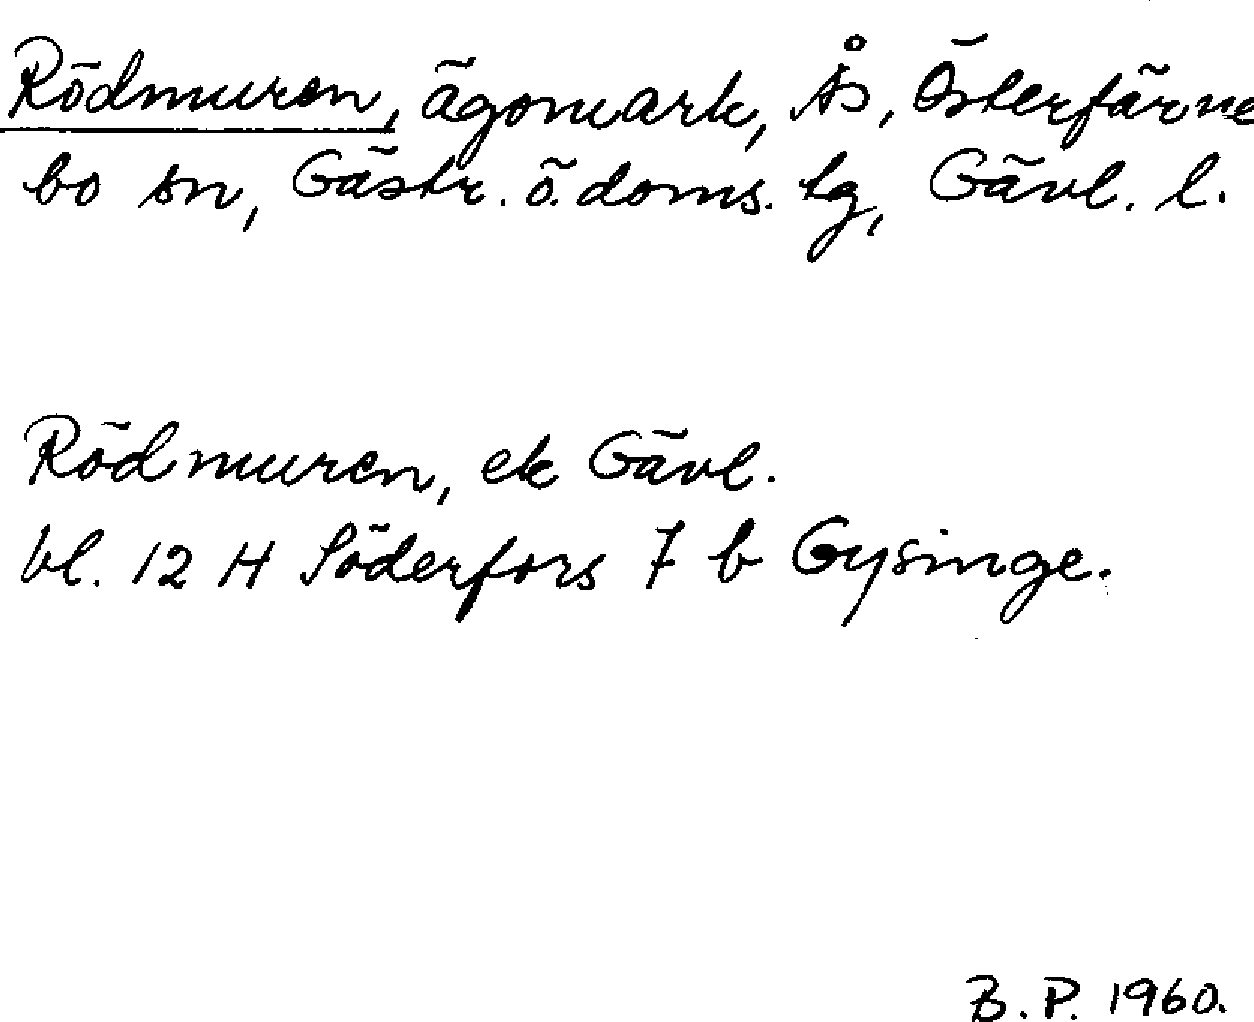 Rödmuren, ägomark, Ås, Österfärne
bo sn, Gästr. ö. doms. tg, Gävl. l.
Rödmuren, ek Gävl.
bl. 12 H Söderfors 7 b Gysinge.
B. P. 1960.